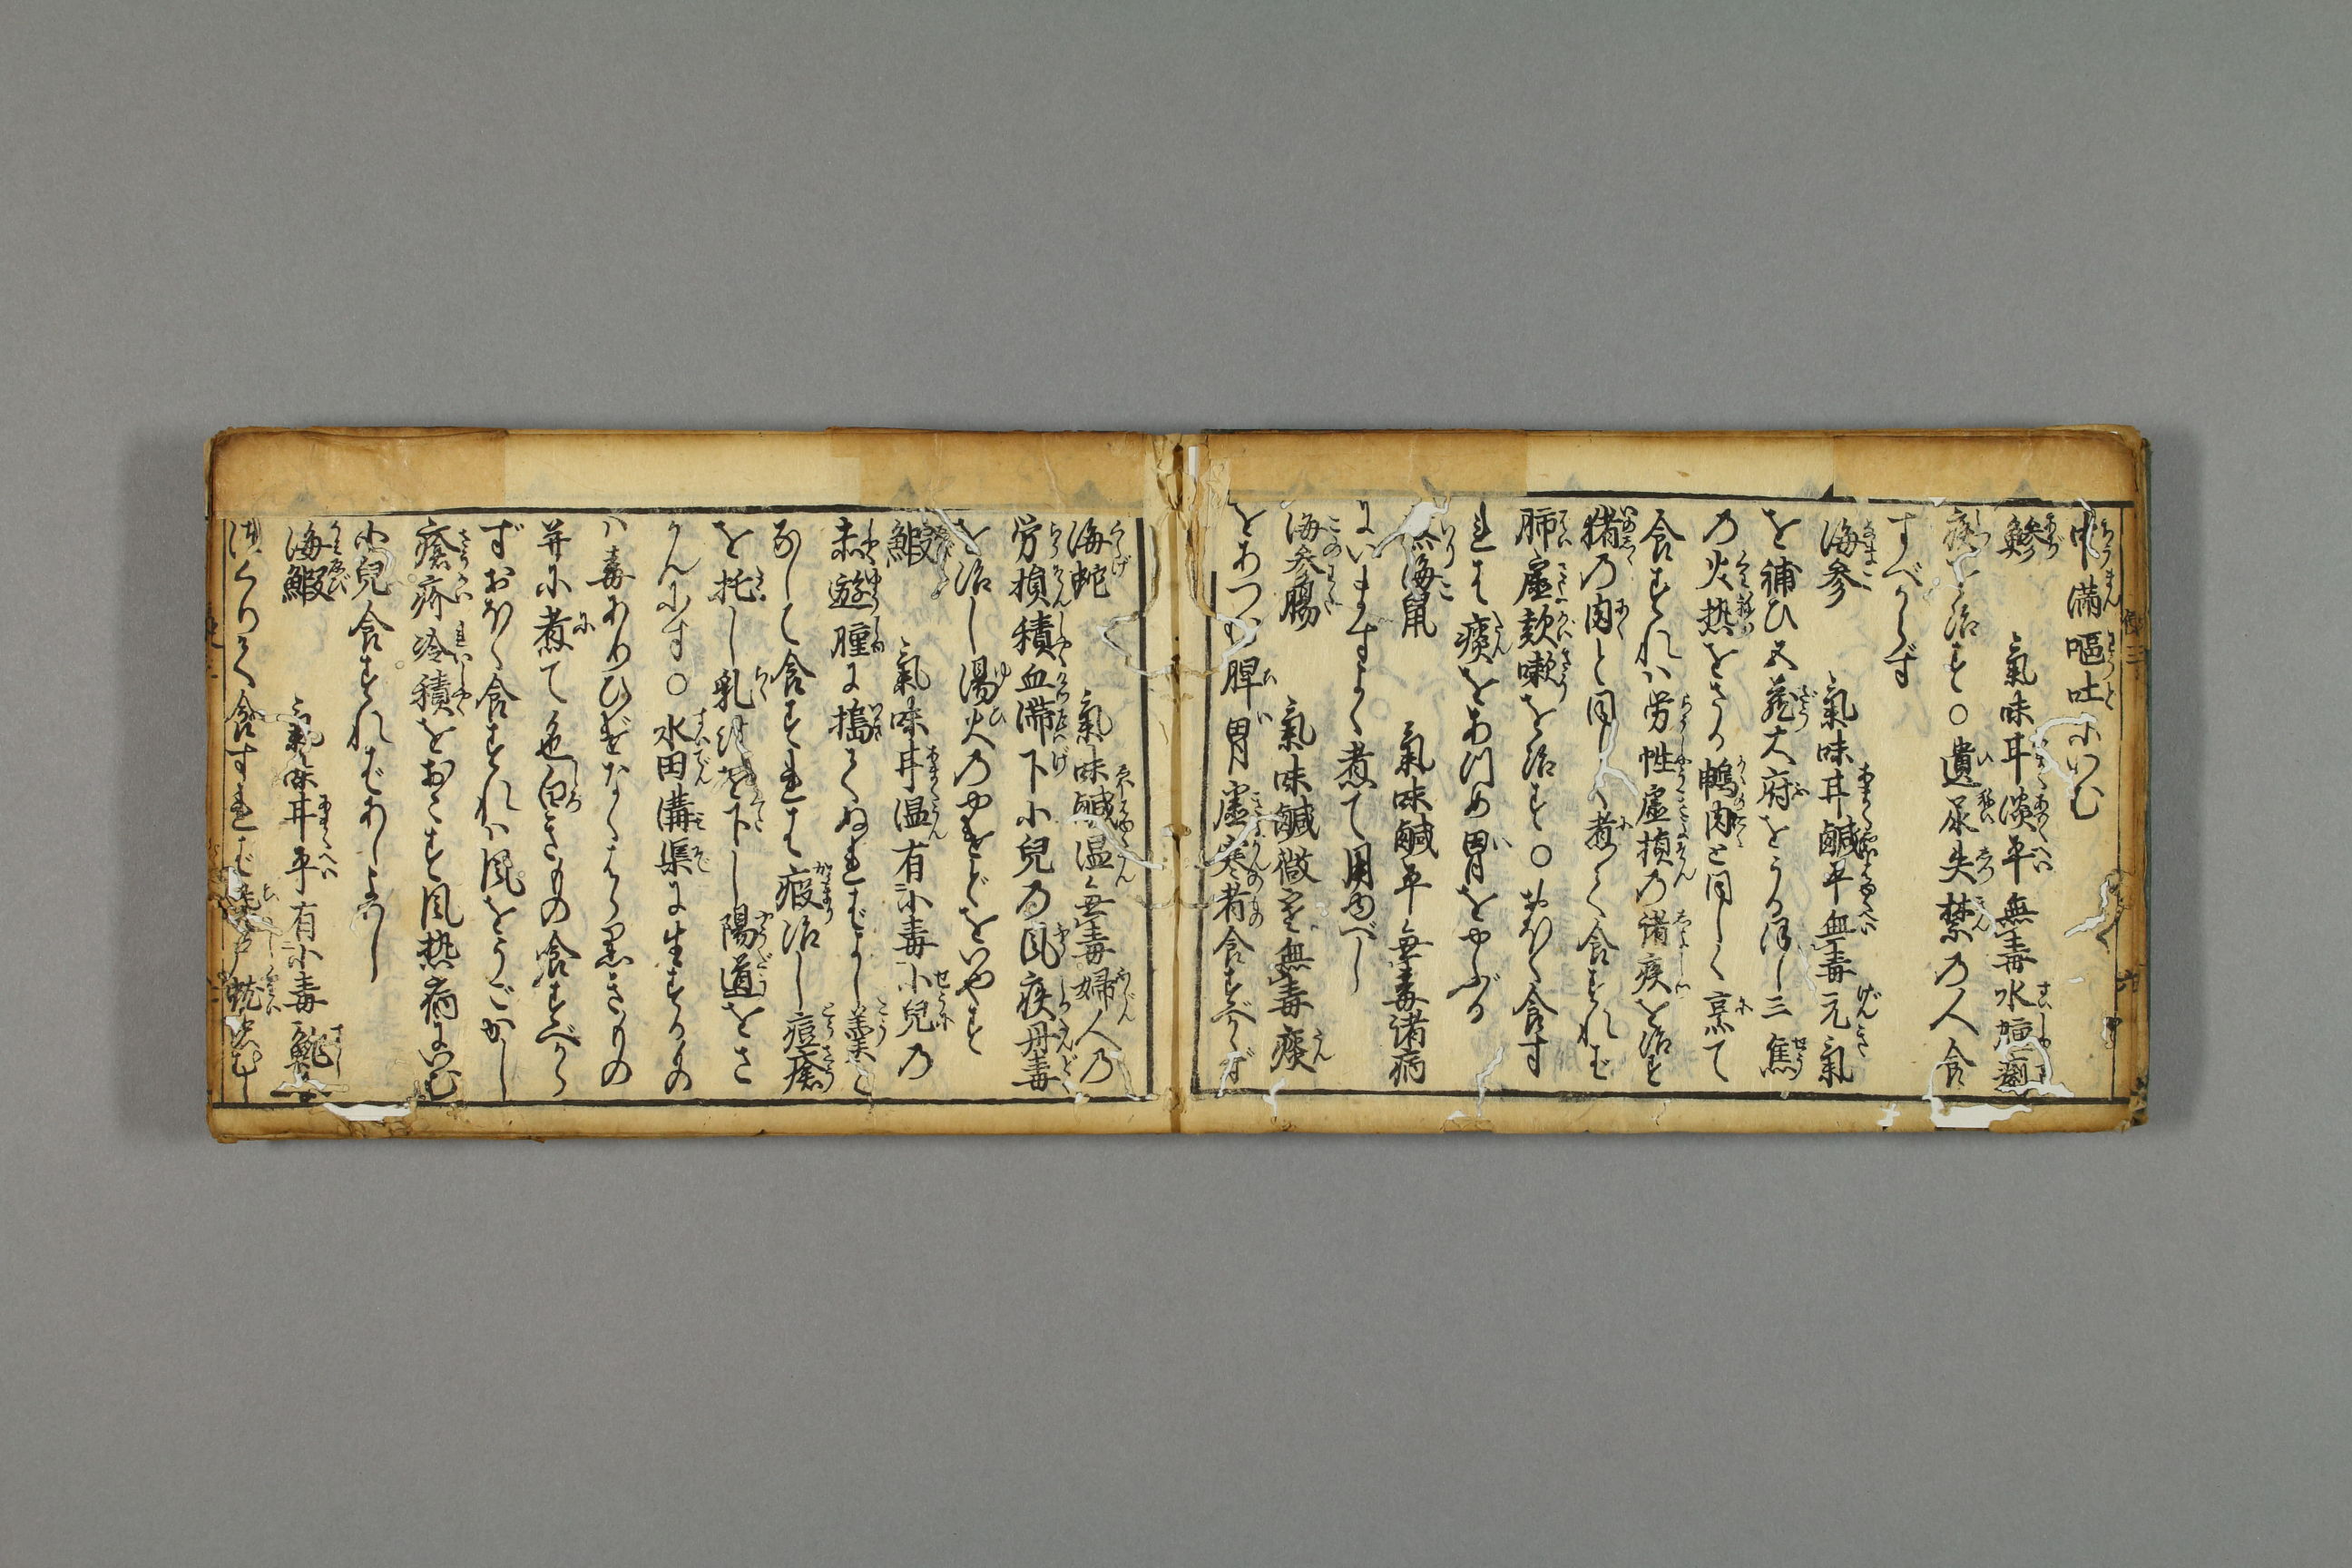 中満嘔吐にいむ
鯵 氣味甘淡平無毒水
疾を治す○遺尿失禁の人食
すべからず
海参 氣味甘鹹平無毒元氣
を補ひ五蔵六府をうるほし三焦
の火热をさる鴨肉と同しく烹て
食すれハ労怯虚損の諸疾を治す
猪の肉と同しく煮て食すれば
肺虚欬嗽を治す○おほく食す
れば痰をあつめ胃をやぶる
海鼠 氣味鹹平無毒諸病
にいまずよく煮て用ゆべし
海参腸 氣味鹹微寒無毒痰
をあつむ脾胃虚寒者食すべからず
海蛇 氣味鹹温無毒婦人の
労損積血滞下小兒の風疾丹毒
を治し湯火のやけどをいやす
鰕 氣味甘温有小毒小兒の
赤遊腫に搗てぬればよし羹と
なして食すれば瘕治し痘瘡
を托し乳汁を下し陽道をさ
かんにす○水田溝渠に生するもの
ハ毒ありひげなくはら黒きもの
并に煮て色白きもの食すべから
ずおほく食すれハ風をうごかし
瘡疥冷積をおこす風热病にいむ
小兒食すればあしなへ
海鰕 氣味甘平有小毒鮓
につくりて食すれば